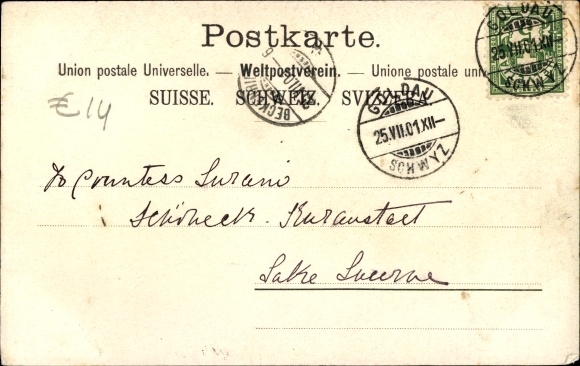 Postkarte.
Union postale Universelle. — Weltpostverein. — Unione postale
SUISSE. SCHWEIZ. SVIZZERA.
GOLDAU
25.VII.01.XII
SCHWYZ
GOLDAU
25.VII.01.XII—
SCHWYZ
€14
To Countess
Schöneck. Kuranstalt
Lake Lucerne